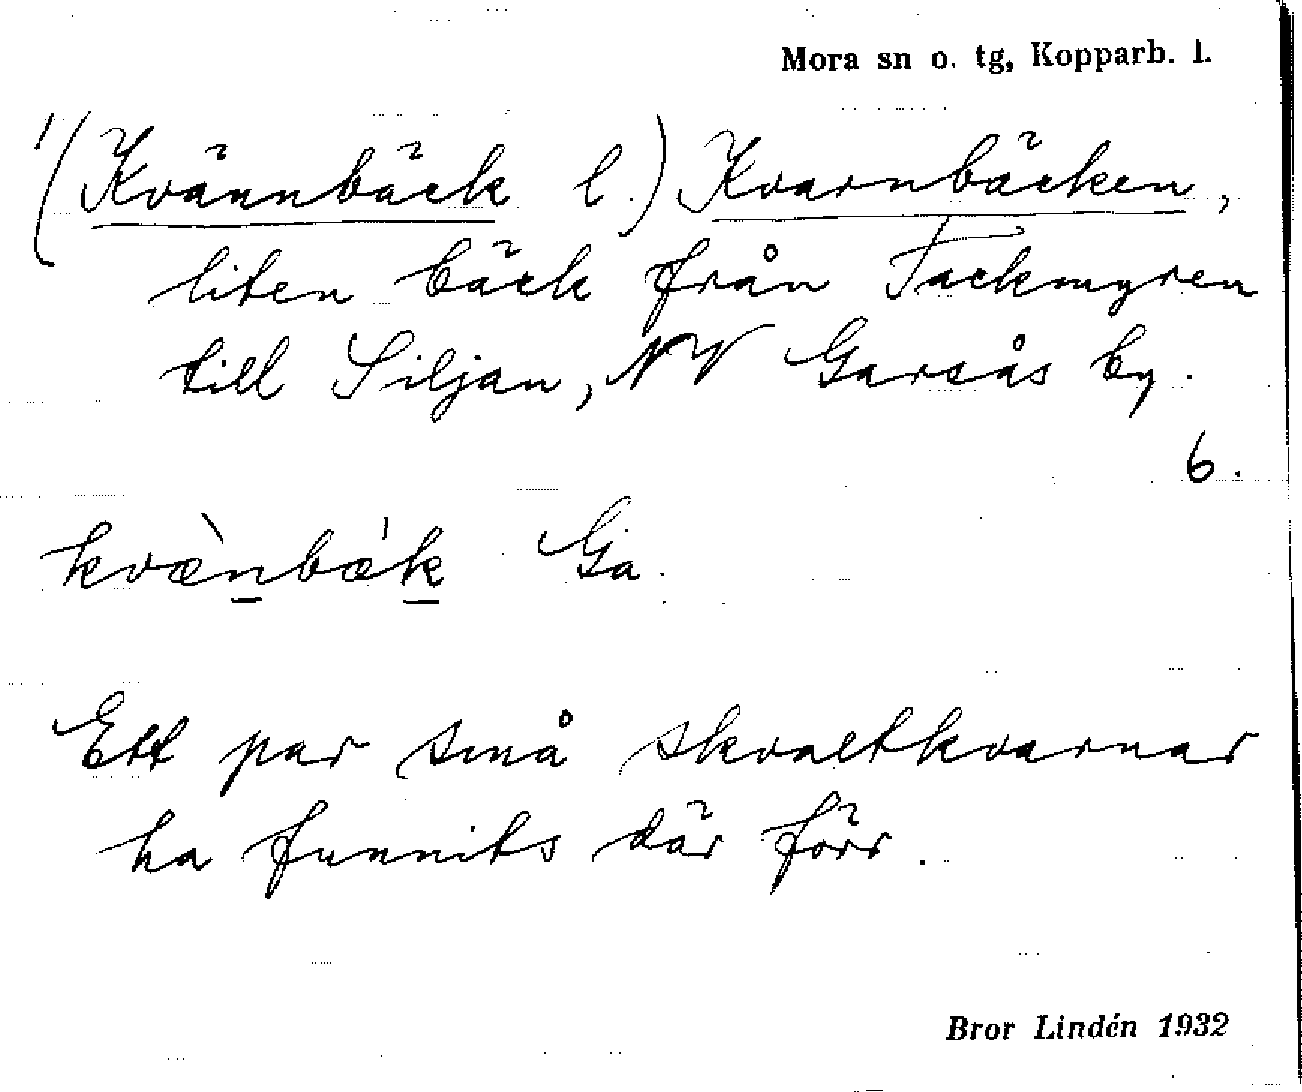 Mora sn o. tg, Kopparb. l.
1/(Kvännbäck l.) Kvarnbäcken,
liten bäck från Tackmyren
till Siljan, NV Garsås by.
6.
kvæ̀n̲bǽk̲ Ga.
Ett par små skvaltkvarnar
ha funnits där förr.
Bror Lindén 1932